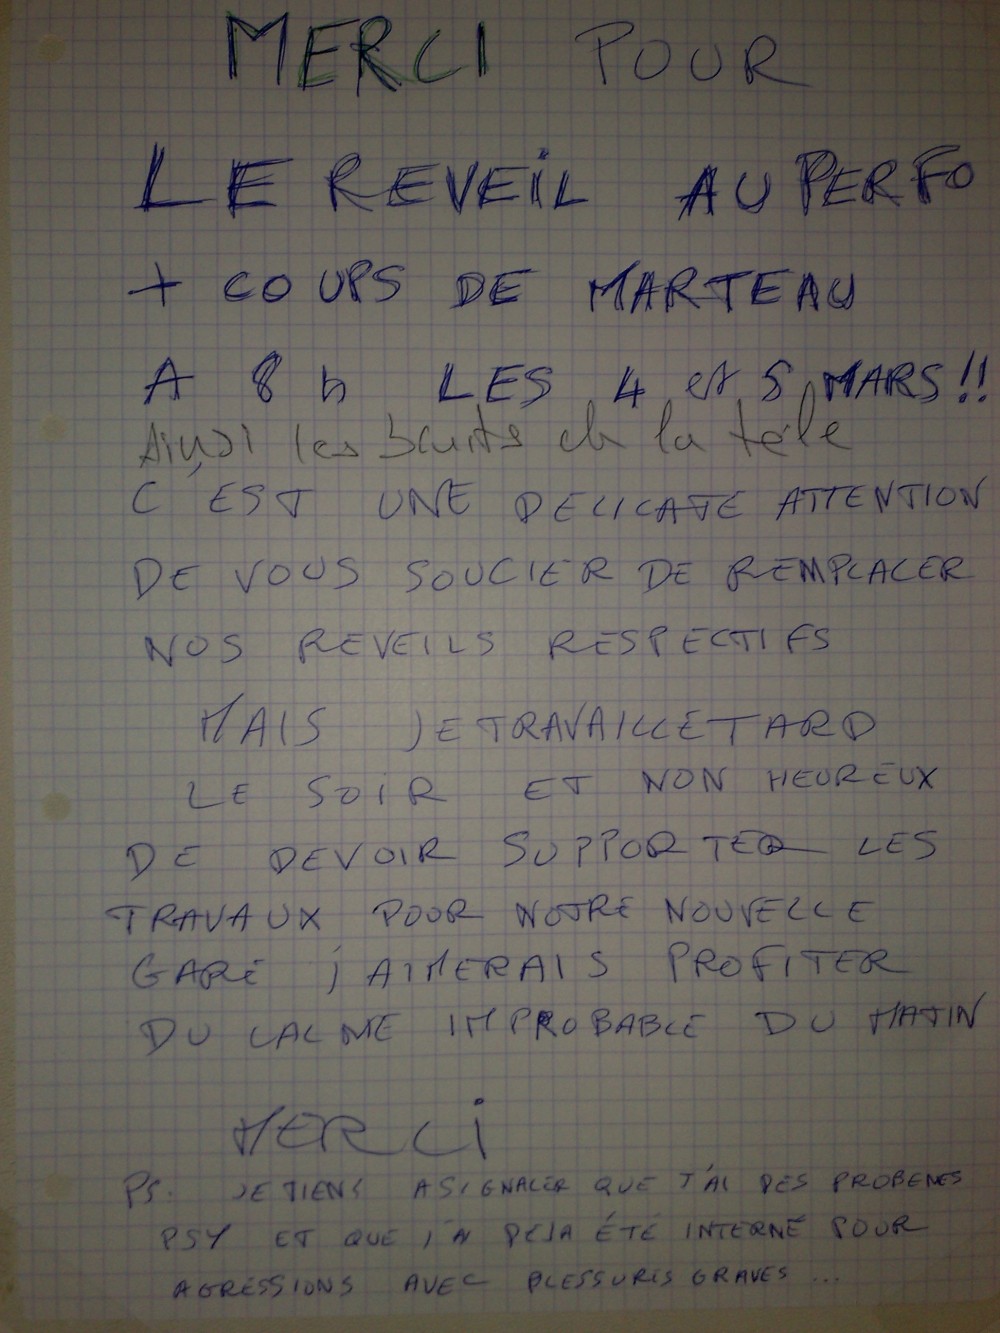 MERCI POUR
LE REVEIL AU PERFO
+ COUPS DE MARTEAU
A 8 h LES 4 et 5 MARS !!
Ainsi les bruits de la télé
C'EST UNE DELICATE ATTENTION
DE VOUS SOUCIER DE REMPLACER
NOS REVEILS RESPECTIFS
MAIS JE TRAVAILLE TARD
LE SOIR ET NON HEUREUX
DE DEVOIR SUPPORTER LES
TRAVAUX POUR NOTRE NOUVELLE
GARE j'AIMERAIS PROFITER
DU CALME IMPROBABLE DU MATIN
MERCI
PS. JE TIENS A SIGNALER QUE J'AI DES PROBEMES
PSY ET QUE J'AI DEJA ÉTÉ INTERNÉ POUR
AGRESSIONS AVEC BLESSURES GRAVES ...